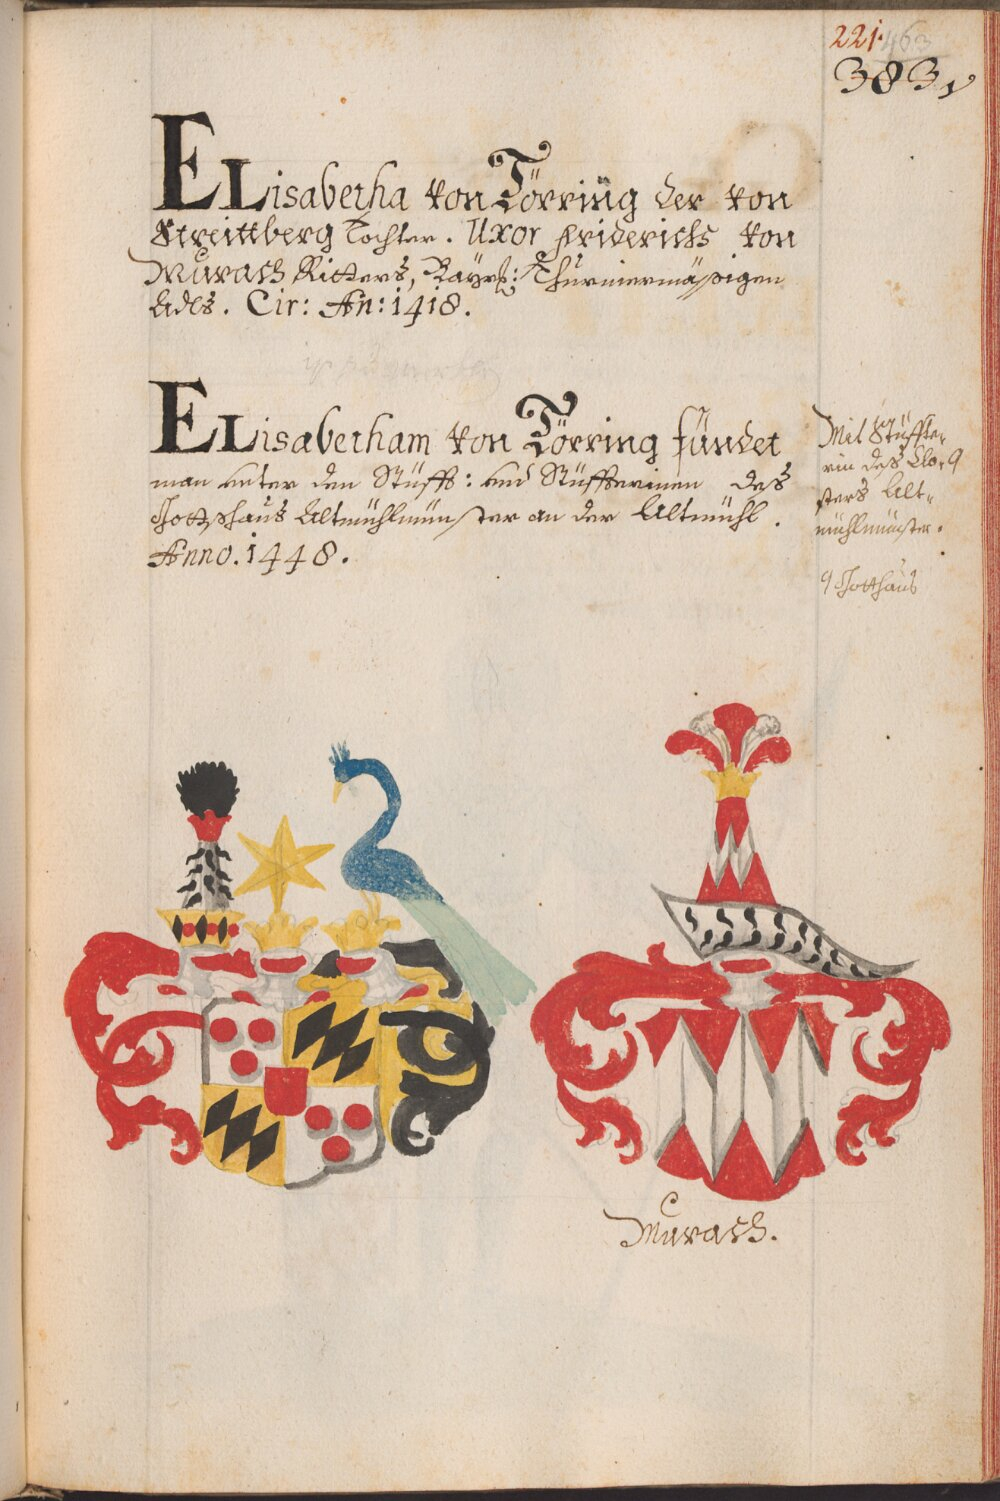 221.
463
383
ELisabetha von Törring der von
Streittberg Tochter. Uxor Friderichs von
Murach Ritters, Bayrß: Thurniermäßigen
Adls. Cir: An: 1418.
ELisabetham von Törring fündet
man unter den Stüfft: und Stüffterinen deß
Gottshaus Altmühlmünster an der Altmühl.
Anno. 1448.
Mit Stüffte,
rin deß Clo,
sters Alt,
mühlmünster.
Gotthaus
Murach.